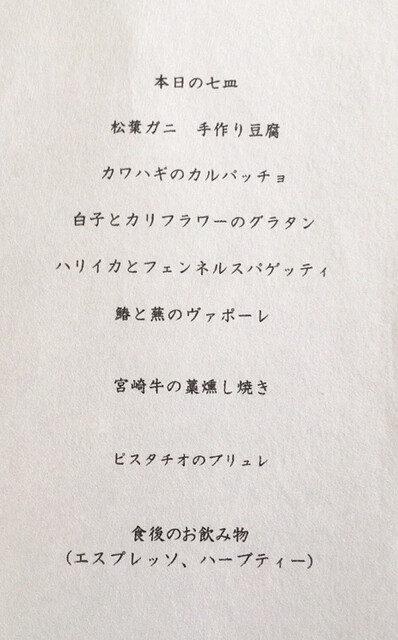 本日の七皿
松葉ガニ　手作り豆腐
カワハギのカルパッチョ
白子とカリフラワーのグラタン
ハリイカとフェンネルスパゲッティ
鰆と蕪のヴァポーレ
宮崎牛の藁燻し焼き
ピスタチオのブリュレ
食後のお飲み物
(エスプレッソ、ハーブティー)